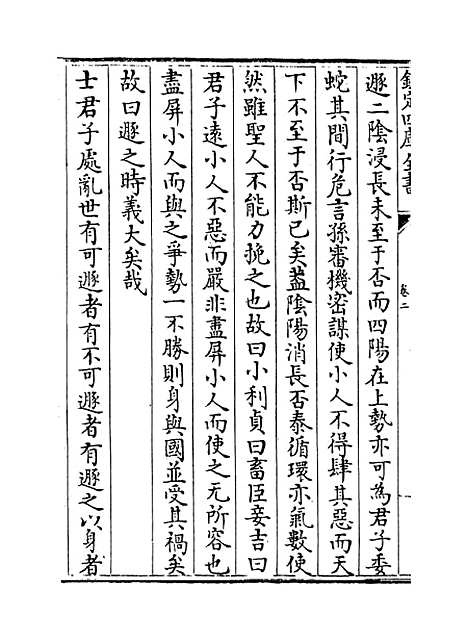 欽定四庫全書
卷二
遯二陰浸長未至于否而四陽在上勢亦可為君子委
蛇其間行危言孫審機密謀使小人不得肆其惡而天
下不至于否斯已矣葢陰陽消長否泰循環亦氣數使
然雖聖人不能力挽之也故曰小利貞曰畜臣妾吉曰
君子遠小人不惡而嚴非盡屏小人而使之无所容也
盡屏小人而與之爭勢一不勝則身與國並受其禍矣
故曰遯之時義大矣哉
士君子處亂世有可遯者有不可遯者有遯之以身者